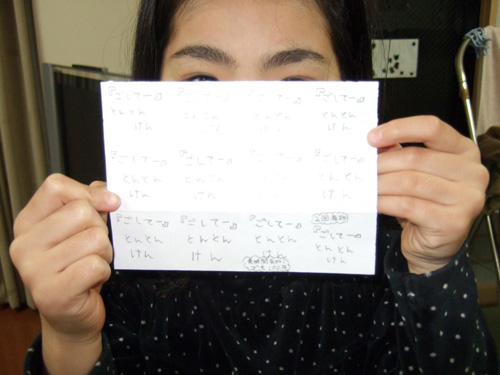 『ごしてー』
とんとん
けん
『ごしてー』
とんとん
けん
『ごしてー』
とんとん
けん
『ごしてー』
とんとん
けん
『ごしてー』
とんとん
けん
『ごしてー』
とんとん
けん
『ごしてー』
とんとん
けん
『ごしてー』
とんとん
けん
『ごしてー』
とんとん
けん
『ごしてー』
とんとん
けん
『ごしてー』
とんとん
2回有効
『ごしてー』
とんとん
けん